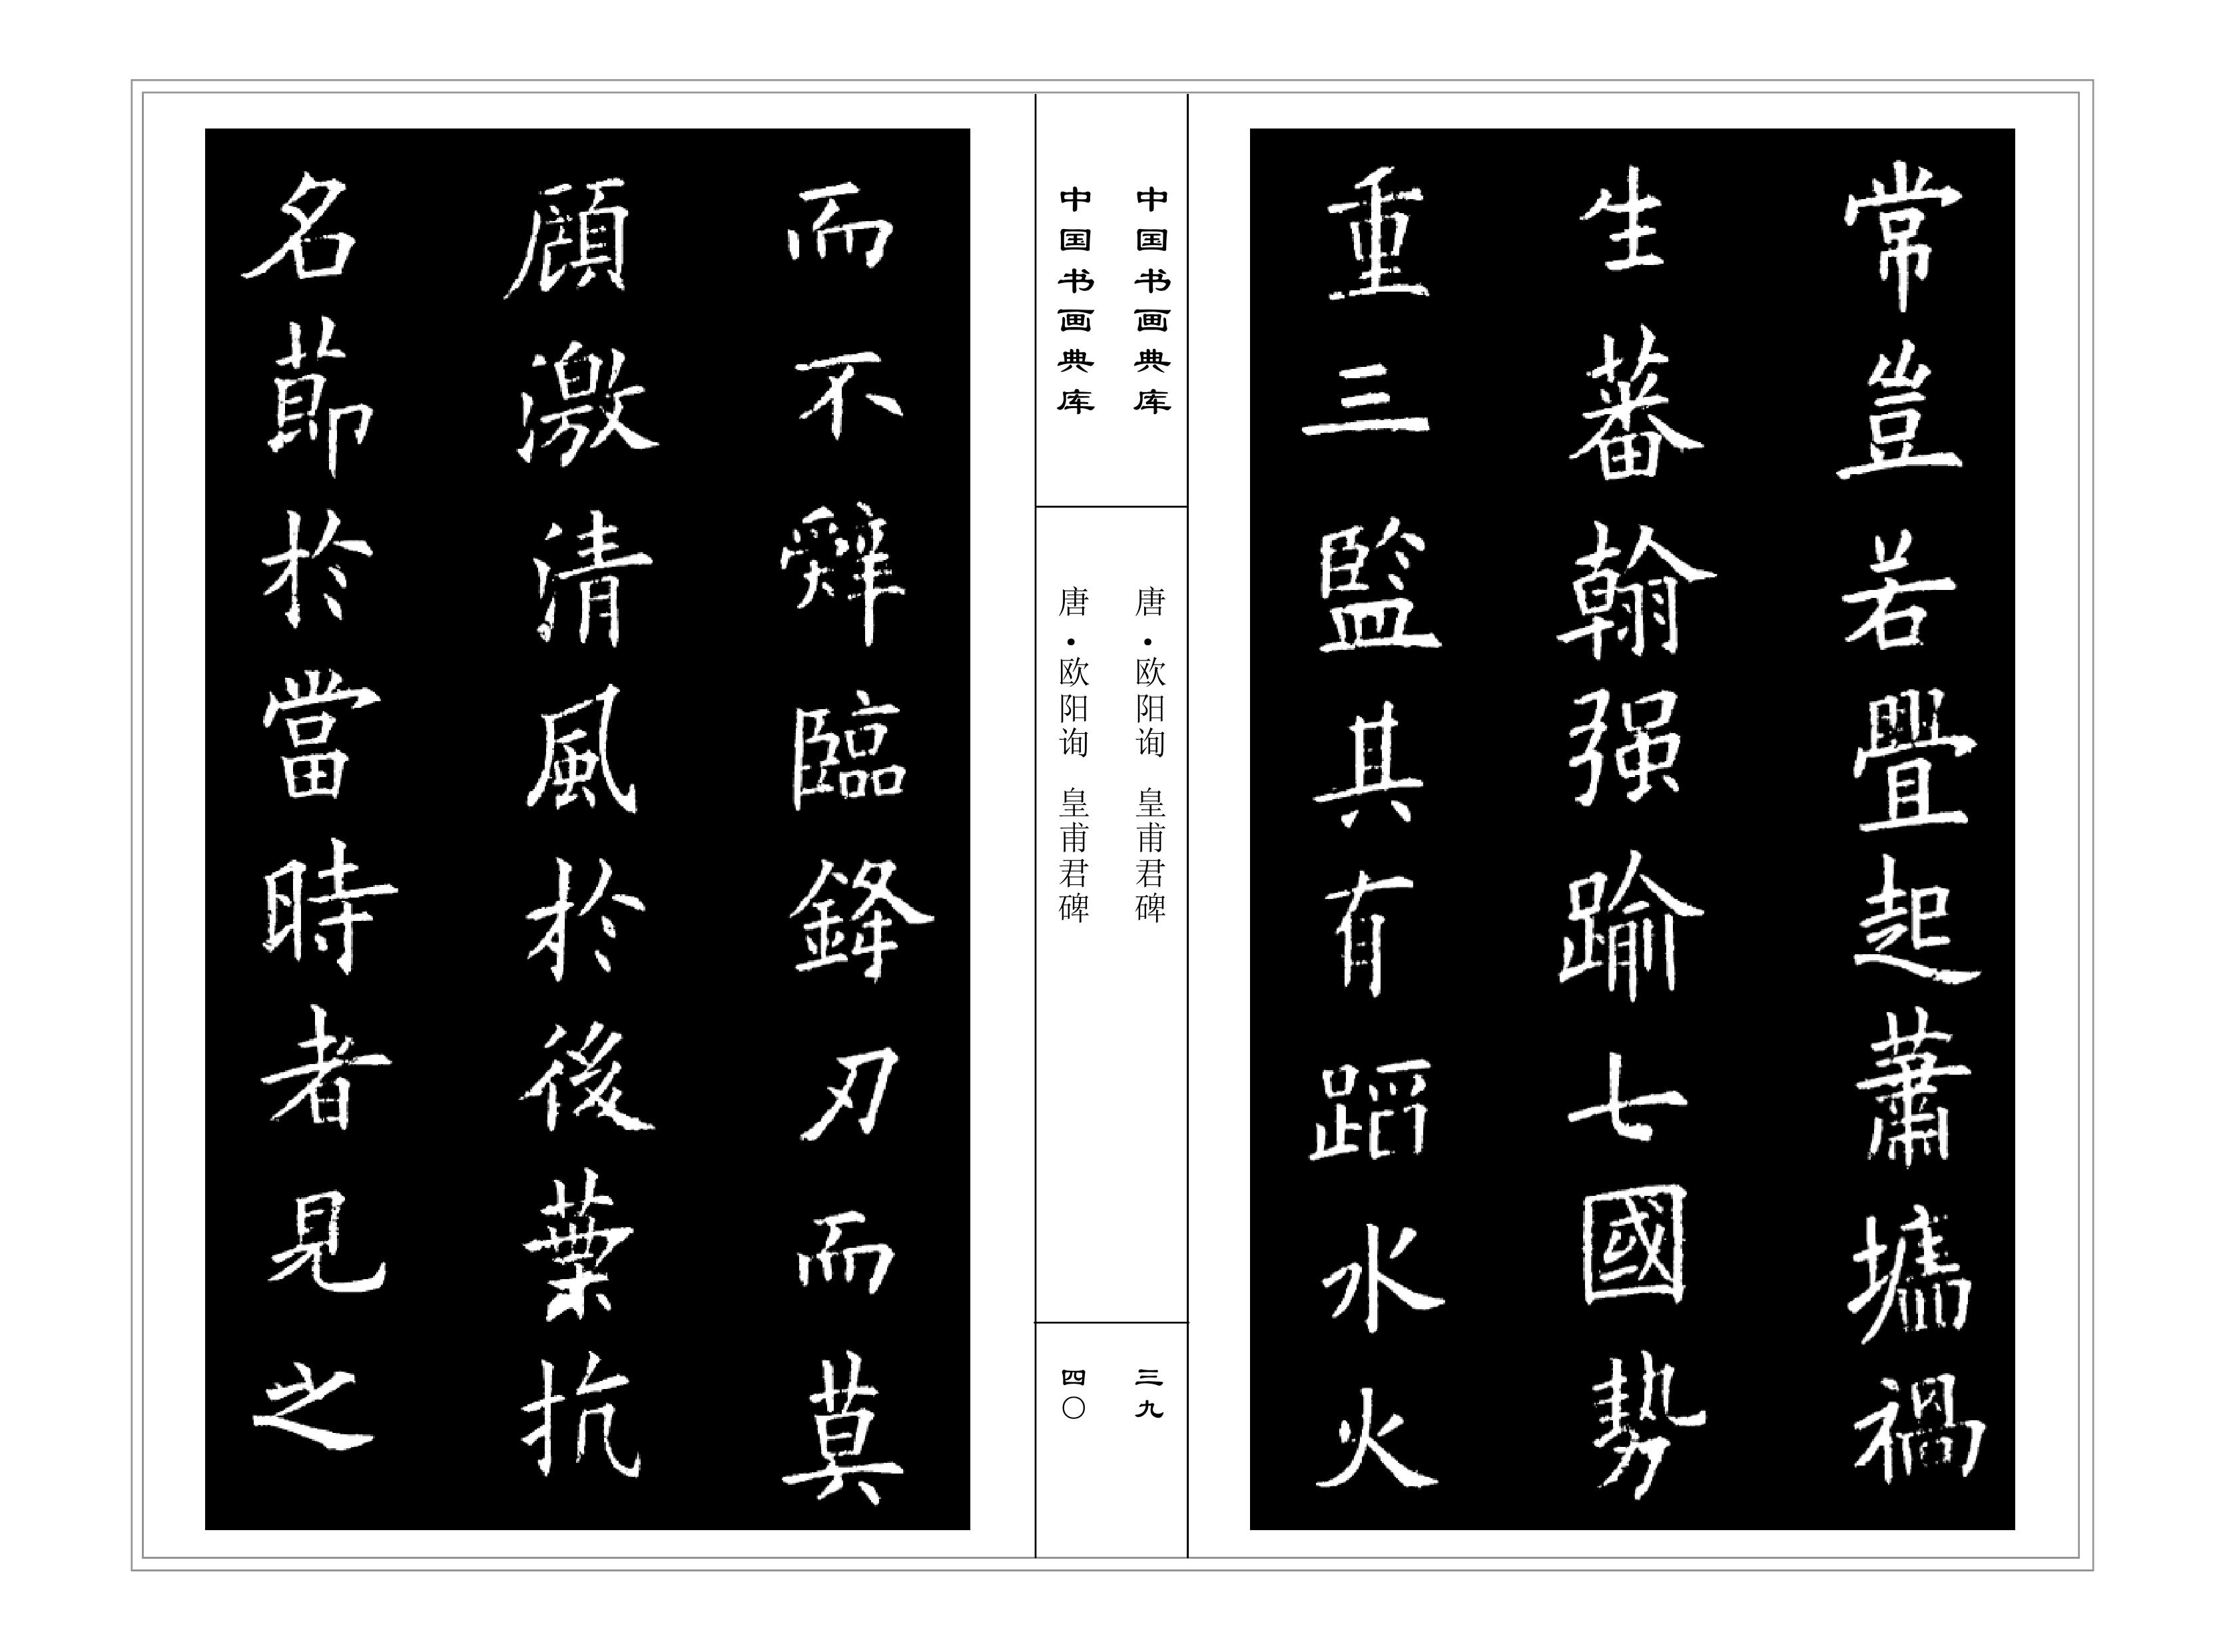 常豈若疊起蕭墻禍
生蕃翰强踰七國勢
重三監其有蹈水火
中国书画典库
唐·欧阳询 皇甫君碑
三九
中国书画典库
唐·欧阳询 皇甫君碑
四〇
而不辭臨鋒刃而莫
顧激清風於後葉抗
名節於當時者見之